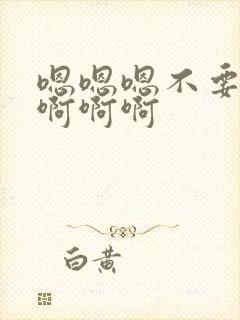 嗯嗯嗯不要
啊啊啊
白黄